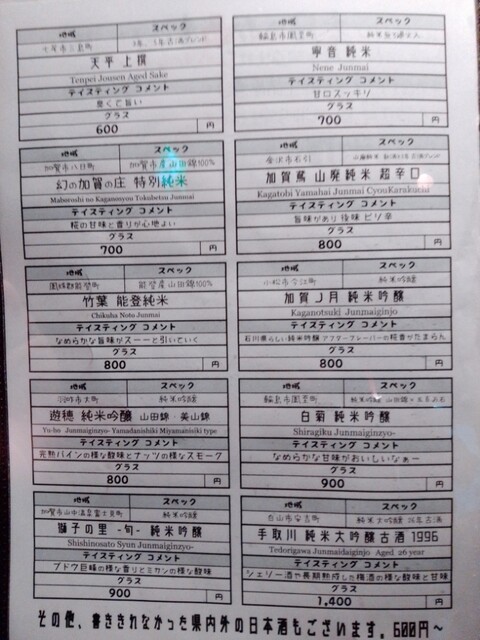 地域 スペック
七尾市三島町
天平 上撰
Tenpei Jousen Aged Sake
テイスティング コメント
重くて旨い
グラス
600 円
地域 スペック
加賀市八日町 加賀市産山田錦100%
幻の加賀の庄 特別純米
Maboroshi no Kaganosyou Tokubetsu Junmai
テイスティング コメント
糀の甘味と香りが心地よい
グラス
700 円
地域 スペック
鳳珠郡能登町 能登産山田錦100%
竹葉 能登純米
Chikuha Noto Junmai
テイスティング コメント
なめらかな旨味がスーーと引いていく
グラス
800 円
地域 スペック
羽咋市大町 純米吟醸
遊穂 純米吟醸 山田錦・美山錦
Yu-ho Junmaiginzyo- Yamadanishiki Miyamanisiki type
テイスティング コメント
完熟パインの様な酸味とナッツの様なスモーク
グラス
800 円
地域 スペック
加賀市山中温泉富士見町 純米吟醸
獅子の里 -旬- 純米吟醸
Shishinosato Syun Junmaiginzyo-
テイスティング コメント
ブドウ巨峰の様な香りとミカンの様な酸味
グラス
900 円
地域 スペック
輪島市鳳至町
寧音 純米
Nene Junmai
テイスティング コメント
甘口スッキリ
グラス
700 円
地域 スペック
金沢市石引
加賀鳶 山廃純米 超辛口
Kagatobi Yamahai Junmai CyouKarakuchi
テイスティング コメント
旨味があり後味 ピリ辛
グラス
800 円
地域 スペック
小松市今江町 純米吟醸
加賀ノ月 純米吟醸
Kaganotsuki Junmaiginjo
テイスティング コメント
石川県らしい純米吟醸 アフターフレーバーの糀香がたまらん
グラス
800 円
地域 スペック
輪島市鳳至町
白菊 純米吟醸
Shiragiku Junmaiginzyo-
テイスティング コメント
なめらかな甘味がおいしいなぁー
グラス
900 円
地域 スペック
白山市安吉町 純米大吟醸 26年古酒
手取川 純米大吟醸古酒 1996
Tedorigawa Junmaidaiginjo Aged 26 year
テイスティング コメント
シェリー酒や長期熟成した梅酒の様な酸味と甘味
グラス
1,400 円
その他、書ききれなかった県内外の日本酒もございます。600円～